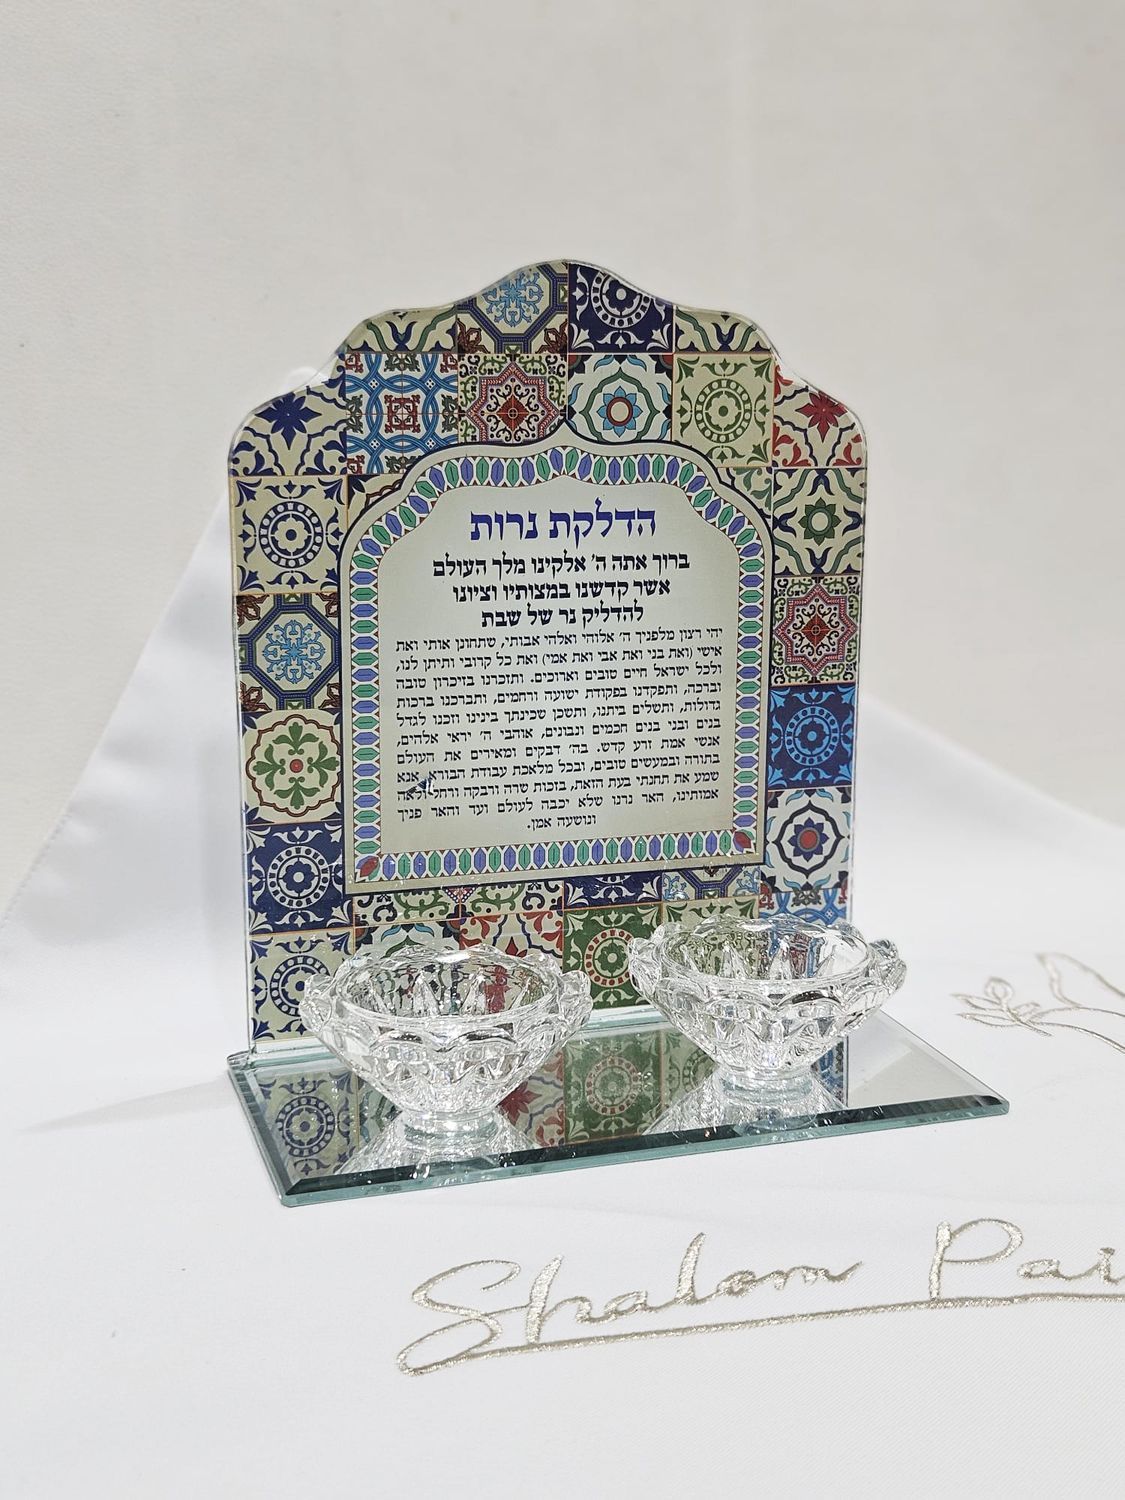 הדלקת נרות
ברוך אתה ה׳ אלקינו מלך העולם
אשר קדשנו במצותיו וציונו
להדליק נר של שבת
יהי רצון מלפניך ה׳ אלוהי ואלהי אבותי, שתחונן אותי ואת
אישי (ואת בני ואת אבי ואת אמי) ואת כל קרובי ותיתן לנו,
ולכל ישראל חיים טובים וארוכים. ותזכרנו בזיכרון טובה
וברכה, ותפקדנו בפקודת ישועה ורחמים, ותברכנו ברכות
גדולות, ותשלים ביתנו, ותשכן שכינתך בינינו וזכנו לגדל
בנים ובני בנים חכמים ונבונים, אוהבי ה׳ יראי אלהים,
אנשי אמת זרע קדש. בה׳ דבקים ומאירים את העולם
בתורה ובמעשים טובים, ובכל מלאכת עבודת הבורא. אנא
שמע את תחנתי בעת הזאת, בזכות שרה ורבקה ורחל ולאה
אמותינו, האר נרנו שלא יכבה לעולם ועד והאר פניך
ונושעה אמן.
Shalom Pai